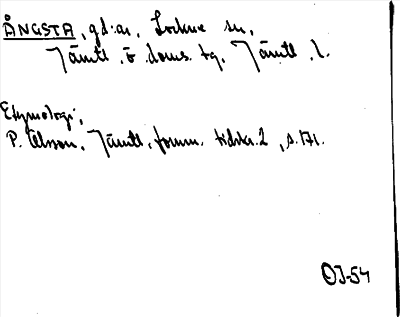 ÅNGSTA, gd:ar, Lockne sn,
Jämtl. ö. doms. tg, Jämtl. l.
Etymologi,
P. Olsson, Jämtl. fornm. tidskr. 2, s. 171.
OJ-54